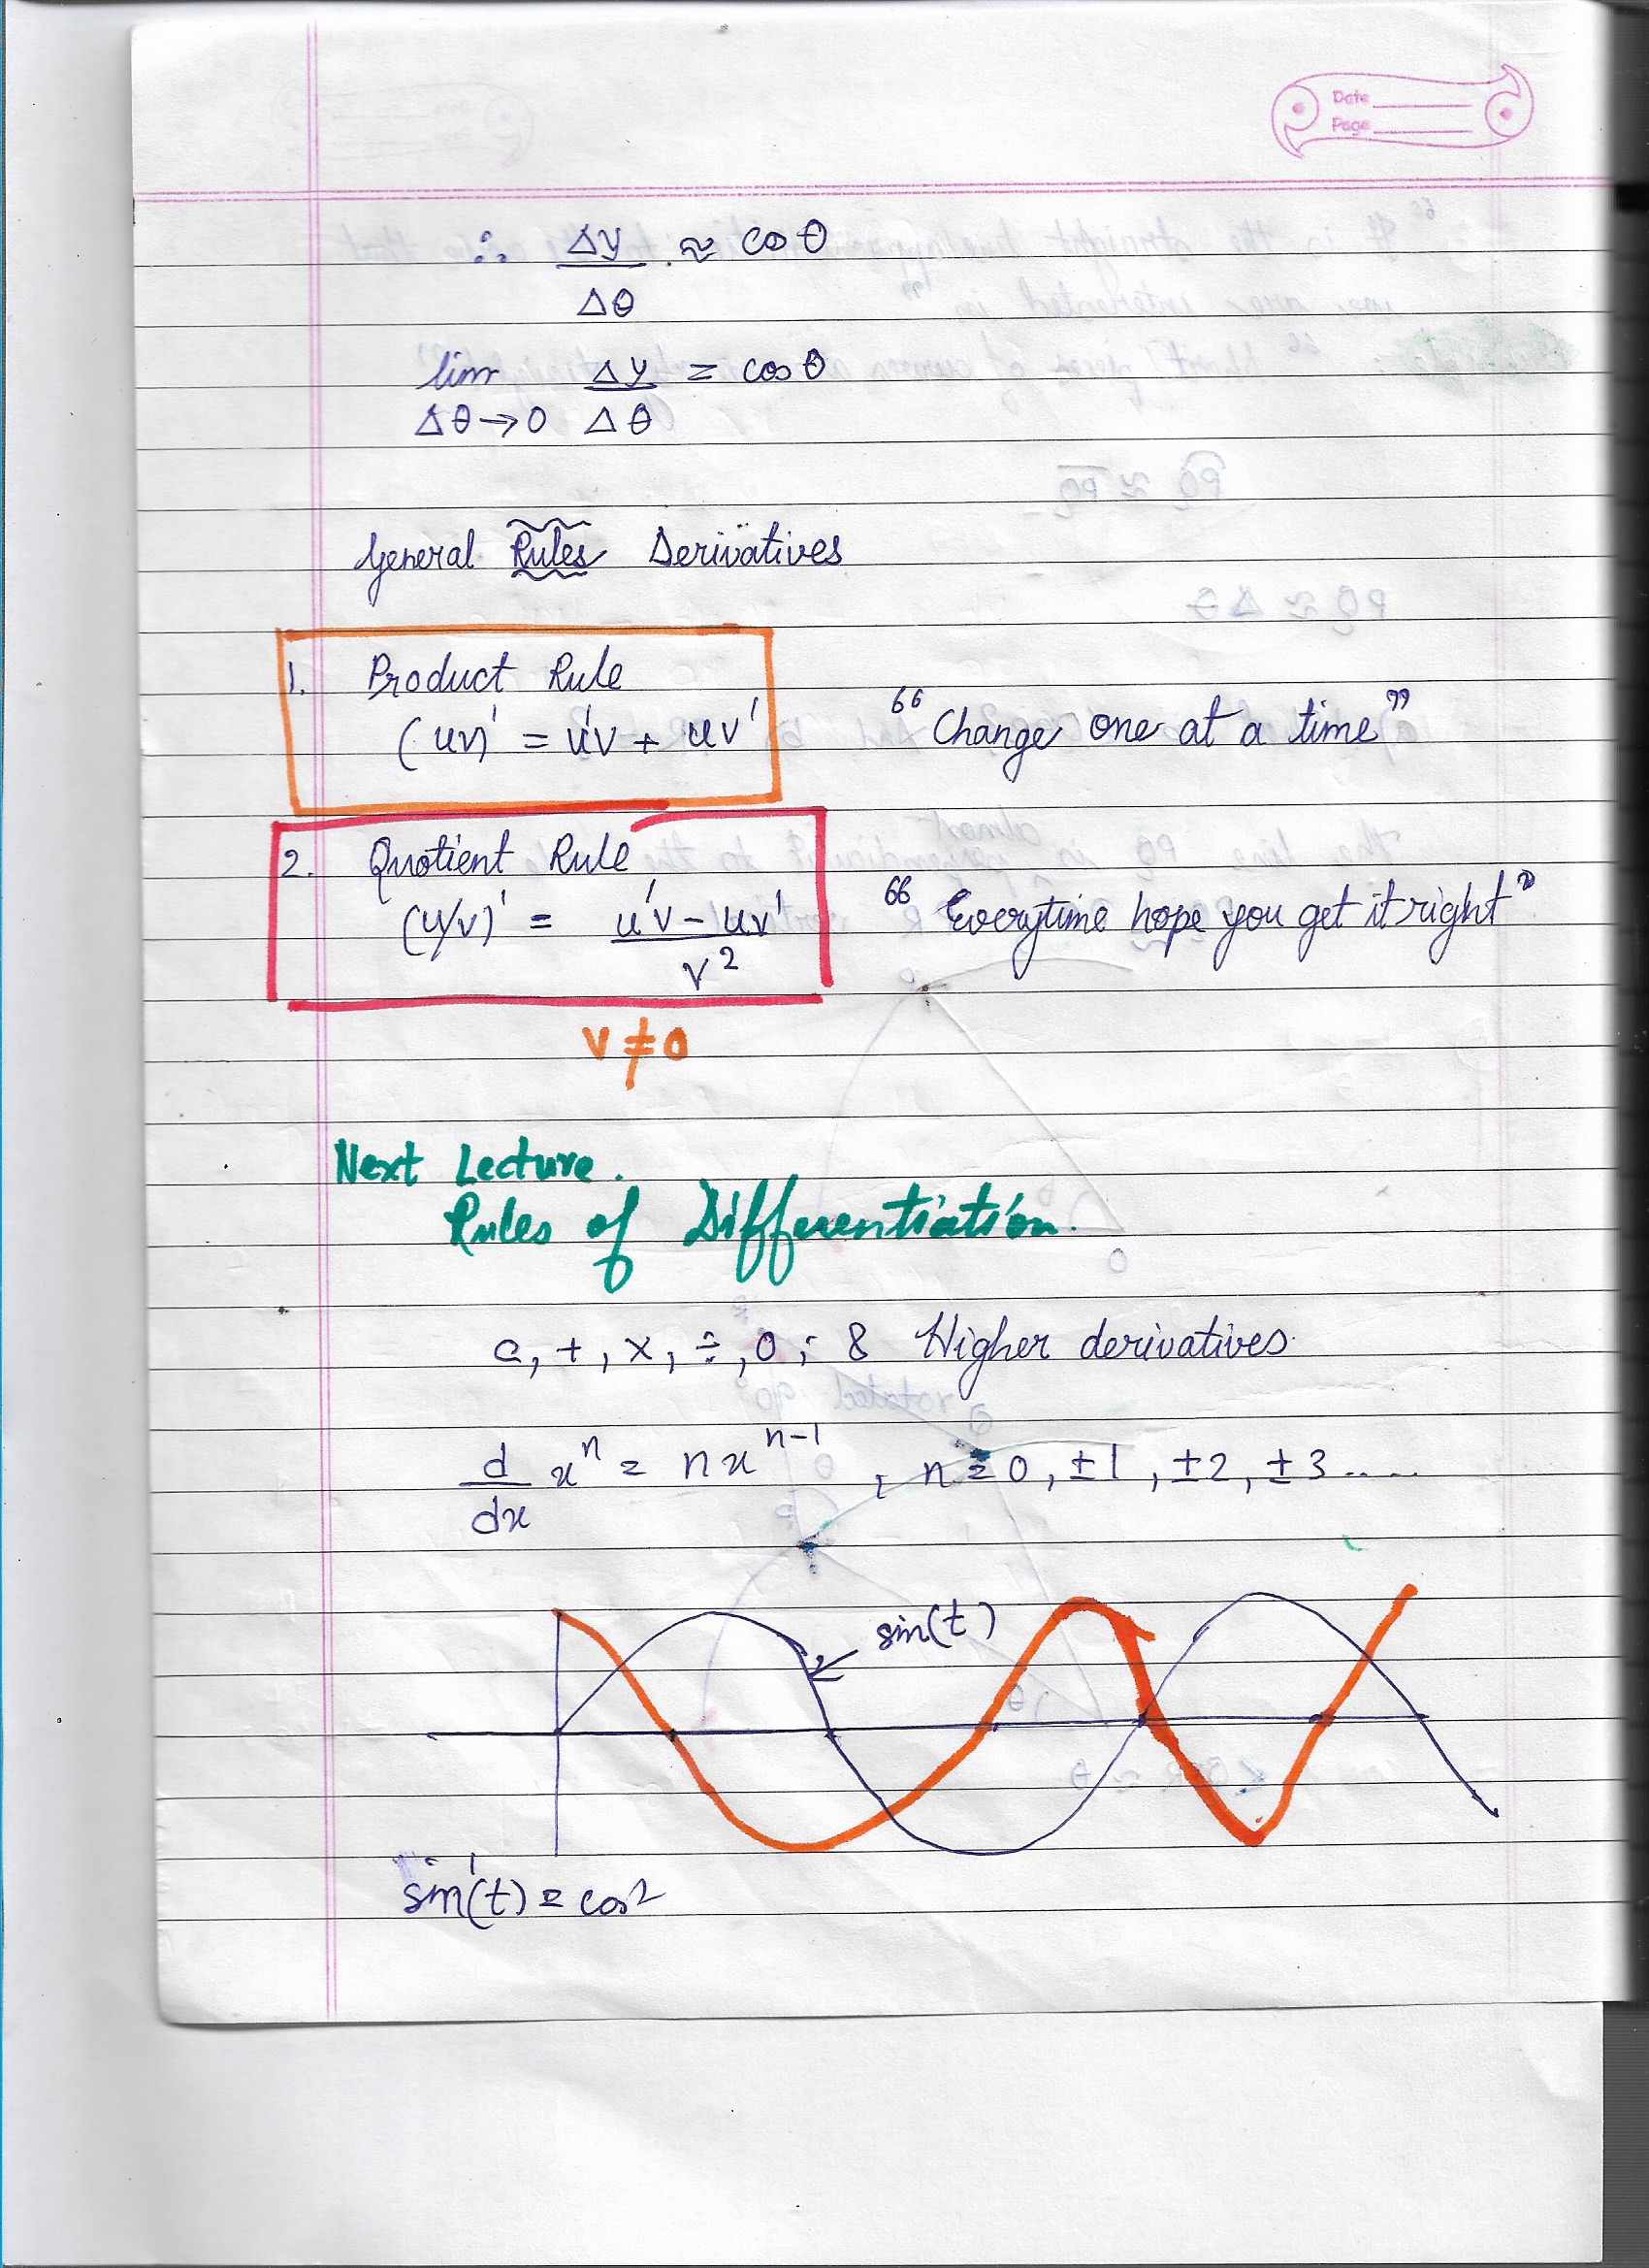 Date
Page
∴ Δy/Δθ ≈ cos θ
lim Δθ→0 Δy/Δθ = cos θ
General Rules Derivatives
1. Product Rule
(uv)' = u'v + uv' "Change one at a time"
2. Quotient Rule
(u/v)' = u'v - uv' / v² "Everytime hope you get it right"
v ≠ 0
Next Lecture.
Rules of Differentiation.
c, +, x, ÷, 0; & Higher derivatives
d/dx xⁿ = nxⁿ⁻¹, n = 0, ±1, ±2, ±3.....
sin(t)
sin'(t) = cos²